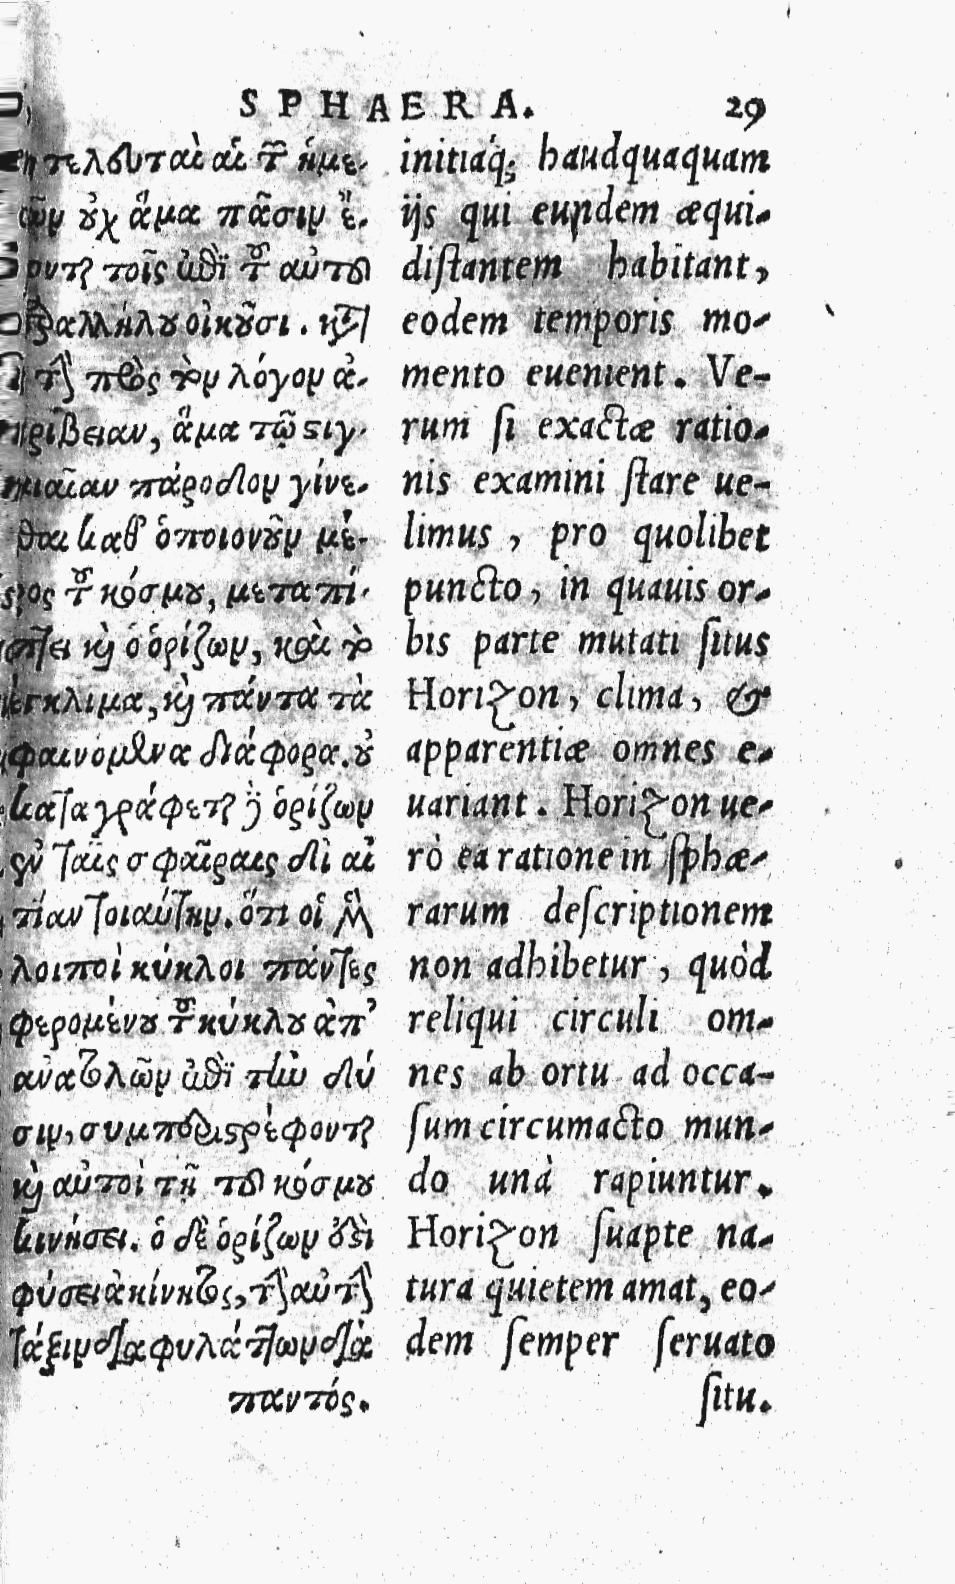 SPHAERA. 29
τελευταὶ αἱ τῶν ἡμε-
ρῶν οὐχ ἅμα πᾶσιν ἔ-
τοῖς ἐπὶ τοῦ αὐτοῦ
παραλλήλου οἰκοῦσι. κατὰ
τὴν πρὸς τὸν λόγον ἀ-
κρίβειαν, ἅμα τῷ στιγ-
μιαῖαν πάροδον γίνε-
σθαι καθ' ὁποιονοῦν μέ-
ρος τοῦ κόσμου, μεταπί-
πτει καὶ ὁ ὁρίζων, καὶ τὸ
ἔγκλιμα, καὶ πάντα τὰ
φαινόμενα διάφορα. οὐ
καταγράφεται δὲ ὁρίζων
ἐν ταῖς σφαίραις δι' αἰ
τίαν τοιαύτην. ὅτι οἱ μὲν
λοιποὶ κύκλοι πάντες
φερομένου τοῦ κύκλου ἀπ'
ἀνατολῶν ἐπὶ τὴν δύ
σιν, συμπεριστρέφονται
καὶ αὐτοὶ τῇ τοῦ κόσμου
κινήσει. ὁ δὲ ὁρίζων ἐστὶ
φύσει ἀκίνητος, τὴν αὐτὴν
τάξιν διαφυλάττων διὰ
παντός.
initiaq́; haudquaquam
ijs qui eundem æqui-
distantem habitant,
eodem temporis mo-
mento euenient. Ve-
rum si exactæ ratio-
nis examini stare ue-
limus, pro quolibet
puncto, in quauis or-
bis parte mutati situs
Horizon, clima, &
apparentiæ omnes e-
uariant. Horizon ue-
rò ea ratione in sphæ-
rarum descriptionem
non adhibetur, quòd
reliqui circuli om-
nes ab ortu ad occa-
sum circumacto mun-
do unà rapiuntur.
Horizon suapte na-
tura quietem amat, eo-
dem semper seruato
situ.